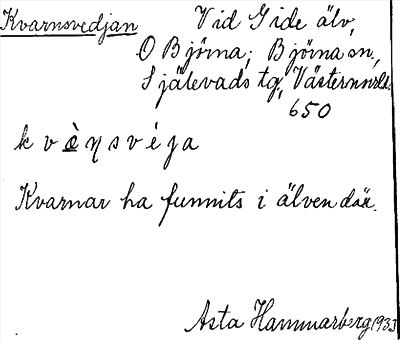 Kvarnsvedjan Vid Gide älv,
O Björna; Björna sn,
Själevads tg, Västernorrl.
650
kvὲṇsvéja
Kvarnar ha funnits i älven där.
Asta Hammarberg 1933